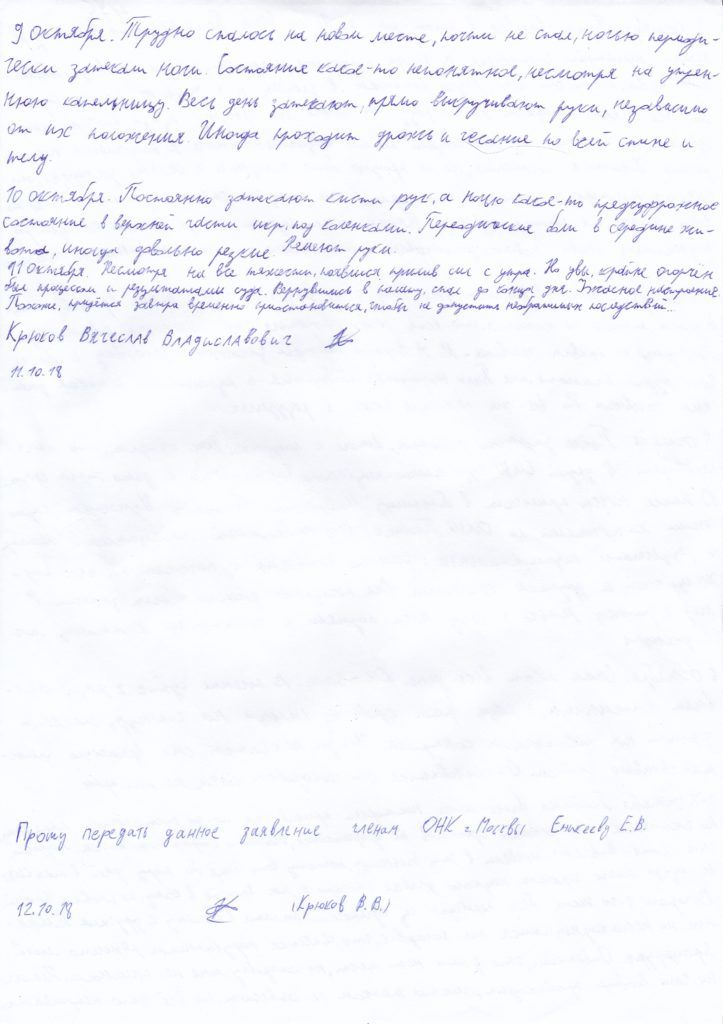 9 октября. Трудно спалось на новом месте, почти не спал, ночью периоди-
чески затекали ноги. Состояние какое-то непонятное, несмотря на утрен-
нюю капельницу. Весь день затекают, прямо выкручивают руки, независимо
от их положения. Иногда проходит дрожь и чесание по всей спине и
телу.
10 октября. Постоянно затекают кисти рук, а ночью какое-то предсудорожное
состояние в верхней части икр, под коленками. Переодические боли в середине жи-
вота, иногда довольно резкие. Немеют руки.
11 октября. Несмотря на все тяжести, появился прилив сил с утра. Но увы, крайне огорчён
был процессом и результатами суда. Вернувшись в палату, спал до конца дня. Ужасное настроение.
Похоже, придётся завтра временно приостановиться, чтобы не допустить необратимых последствий...
Крюков Вячеслав Владиславович
11.10.18
Прошу передать данное заявление членам ОНК г. Москвы Еникееву Е.В.
12.10.18 (Крюков В.В.)